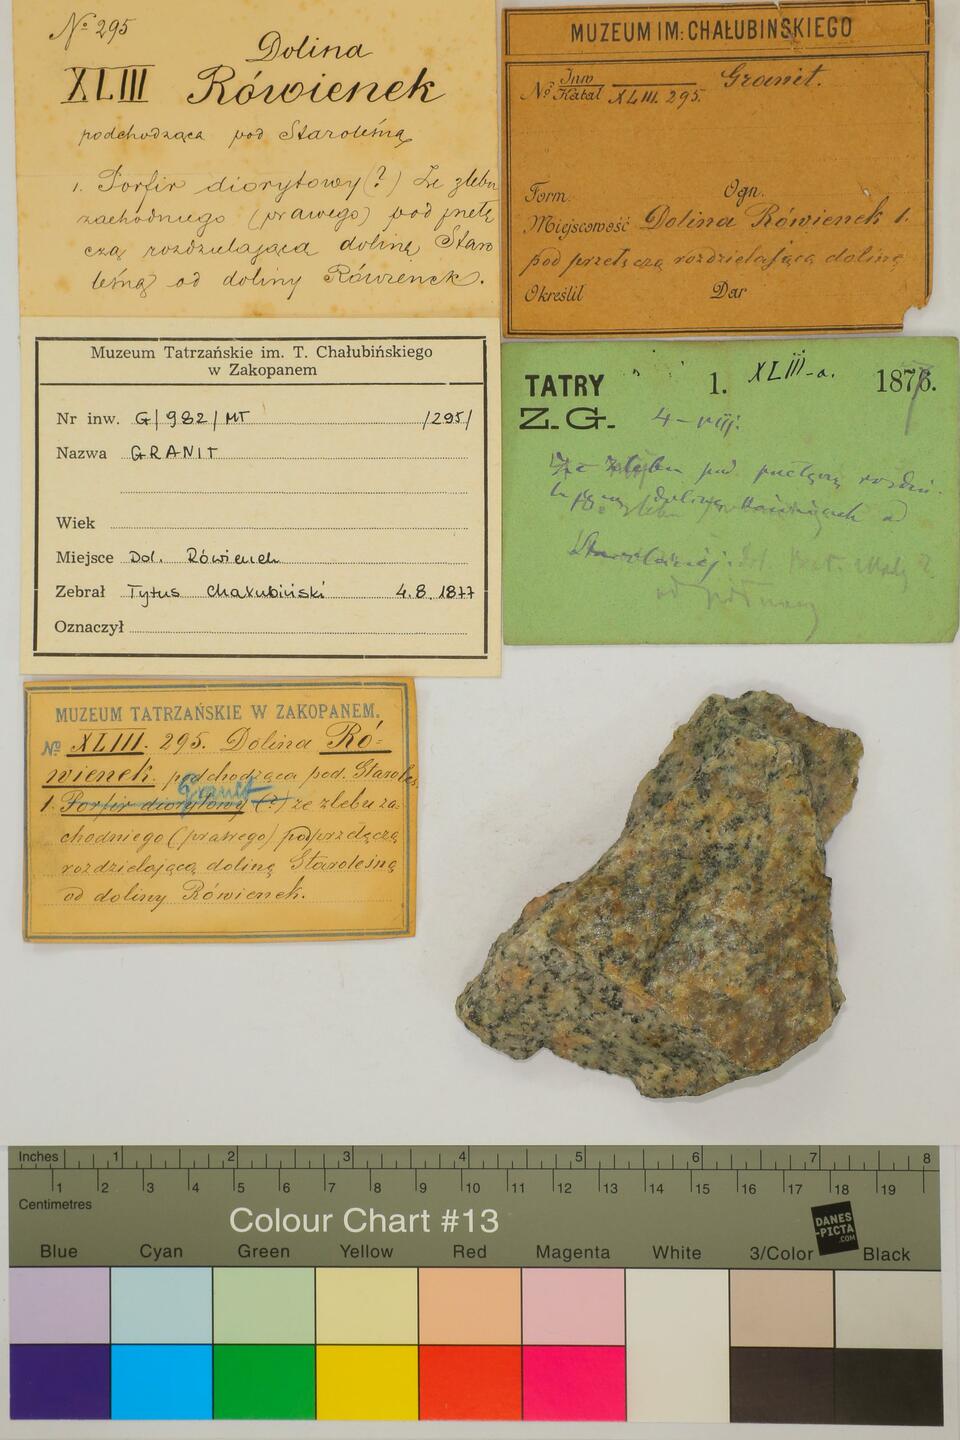 № 295
XLIII Dolina
Rówienek
podchodząca pod Staroleśną
1. Porfir diorytowy (?) Ze żlebu
zachodniego (prawego) pod prze
czą rozdzielającą dolinę Staro
leśną od doliny Rówienek.
MUZEUM IM: CHAŁUBIŃSKIEGO
№ Inw
Katal XLIII. 295. Granit.
Form. Ogn.
Miejscowość Dolina Rówienek 1.
pod przełęczą rozdzielającą dolinę
Określił Dar
Muzeum Tatrzańskie im. T. Chałubińskiego
w Zakopanem
Nr inw. G/982/MT /295/
Nazwa GRANIT
Wiek
Miejsce Dol. Rówienek
Zebrał Tytus Chałubiński 4.8.1877
Oznaczył
TATRY 1. XLIII-a. 1877.
Z.G. 4-VIII.
żlebu pod przełęczą
dolinę Rówienek od
Staroleśnej. Dol.
od północy
MUZEUM TATRZAŃSKIE W ZAKOPANEM.
№ XLIII. 295. Dolina Ró-
wienek. podchodząca pod. Staroleś
Granit
1. Porfir diorytowy (?) ze żlebu za-
chodniego (prawego) pod przełęczą
rozdzielającą dolinę Staroleśną
od doliny Rówienek.
Inches 1 2 3 4 5 6 7 8
1 2 3 4 5 6 7 8 9 10 11 12 13 14 15 16 17 18 19
Centimetres
Colour Chart #13
DANES
-PICTA
.COM
Blue Cyan Green Yellow Red Magenta White 3/Color Black